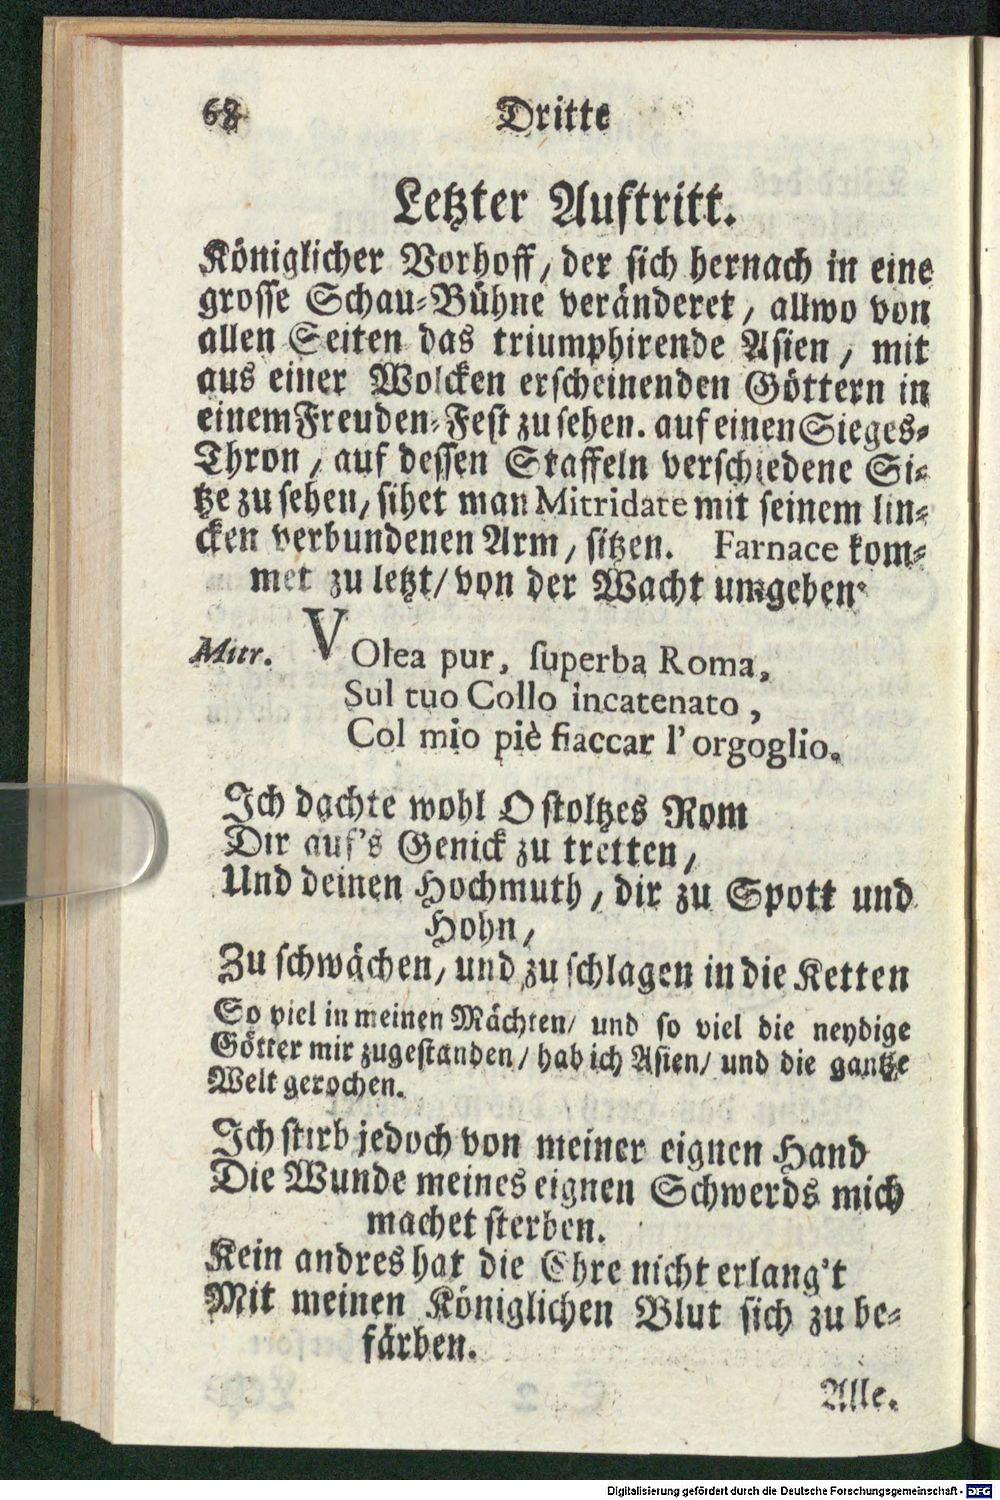 68
Dritte
Letzter Auftritt.
Königlicher Vorhoff, der sich hernach in eine
grosse Schau-Bühne veränderet, allwo von
allen Seiten das triumphirende Asien, mit
aus einer Wolcken erscheinenden Göttern in
einem Freuden-Fest zu sehen. auf einen Sieges-
Thron, auf dessen Staffeln verschiedene Si-
tze zu sehen, sihet man Mitridate mit seinem lin-
cken verbundenen Arm, sitzen. Farnace kom-
met zu letzt/ von der Wacht umgeben.
Mitr. VOlea pur, superba Roma,
Sul tuo Collo incatenato,
Col mio piè fiaccar l'orgoglio.
Ich dachte wohl O stoltzes Rom
Dir auf's Genick zu tretten,
Und deinen Hochmuth, dir zu Spott und
Hohn,
Zu schwächen, und zu schlagen in die Ketten
So viel in meinen Mächten/ und so viel die neydige
Götter mir zugestanden/ hab ich Asien/ und die gantze
Welt gerochen.
Ich stirb jedoch von meiner eignen Hand
Die Wunde meines eignen Schwerds mich
machet sterben.
Kein andres hat die Ehre nicht erlang't
Mit meinen Königlichen Blut sich zu be-
färben.
Alle.
Digitalisierung gefördert durch die Deutsche Forschungsgemeinschaft - DFG